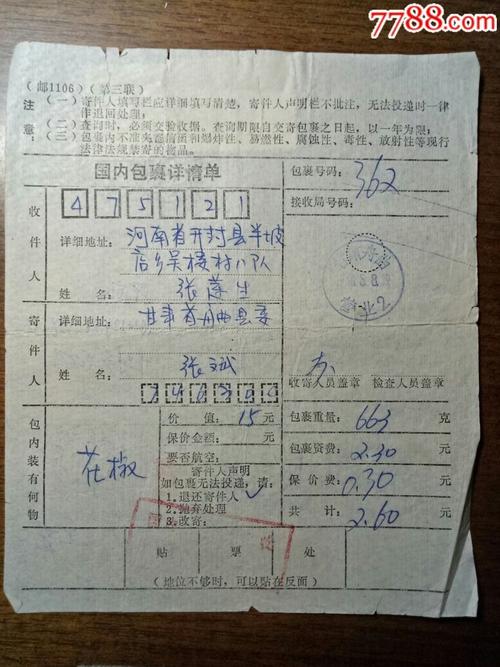 7788.com
（邮1106）（第三联）
注意：
（一）寄件人填写栏应详细填写清楚，寄件人声明栏不批注，无法投递时一律
作退回处理；
（二）查询时，必须交验收据。查询期限自交寄包裹之日起，以一年为限；
（三）包裹内不准夹寄信函和爆炸性、易燃性、腐蚀性、毒性、放射性等现行
法律法规禁寄的物品。
国内包裹详情单
包裹号码：362
接收局号码：
收件人
475121
详细地址：河南省开封县半坡
店乡吴楼村八队
姓名：张莲生
寄件人
详细地址：甘肃省舟曲县委
姓名：张斌
营业2
收寄人员盖章 检查人员盖章
包内装有何物
花椒
价值：15元
保价金额：元
要否航空：
寄件人声明
如包裹无法投递，请：
1.退还寄件人 ✓
2.抛弃处理
3.改寄：
包裹重量：663克
包裹资费：2.30元
保价费：0.30元
共计：2.60元
贴票处
（地位不够时，可以贴在反面）